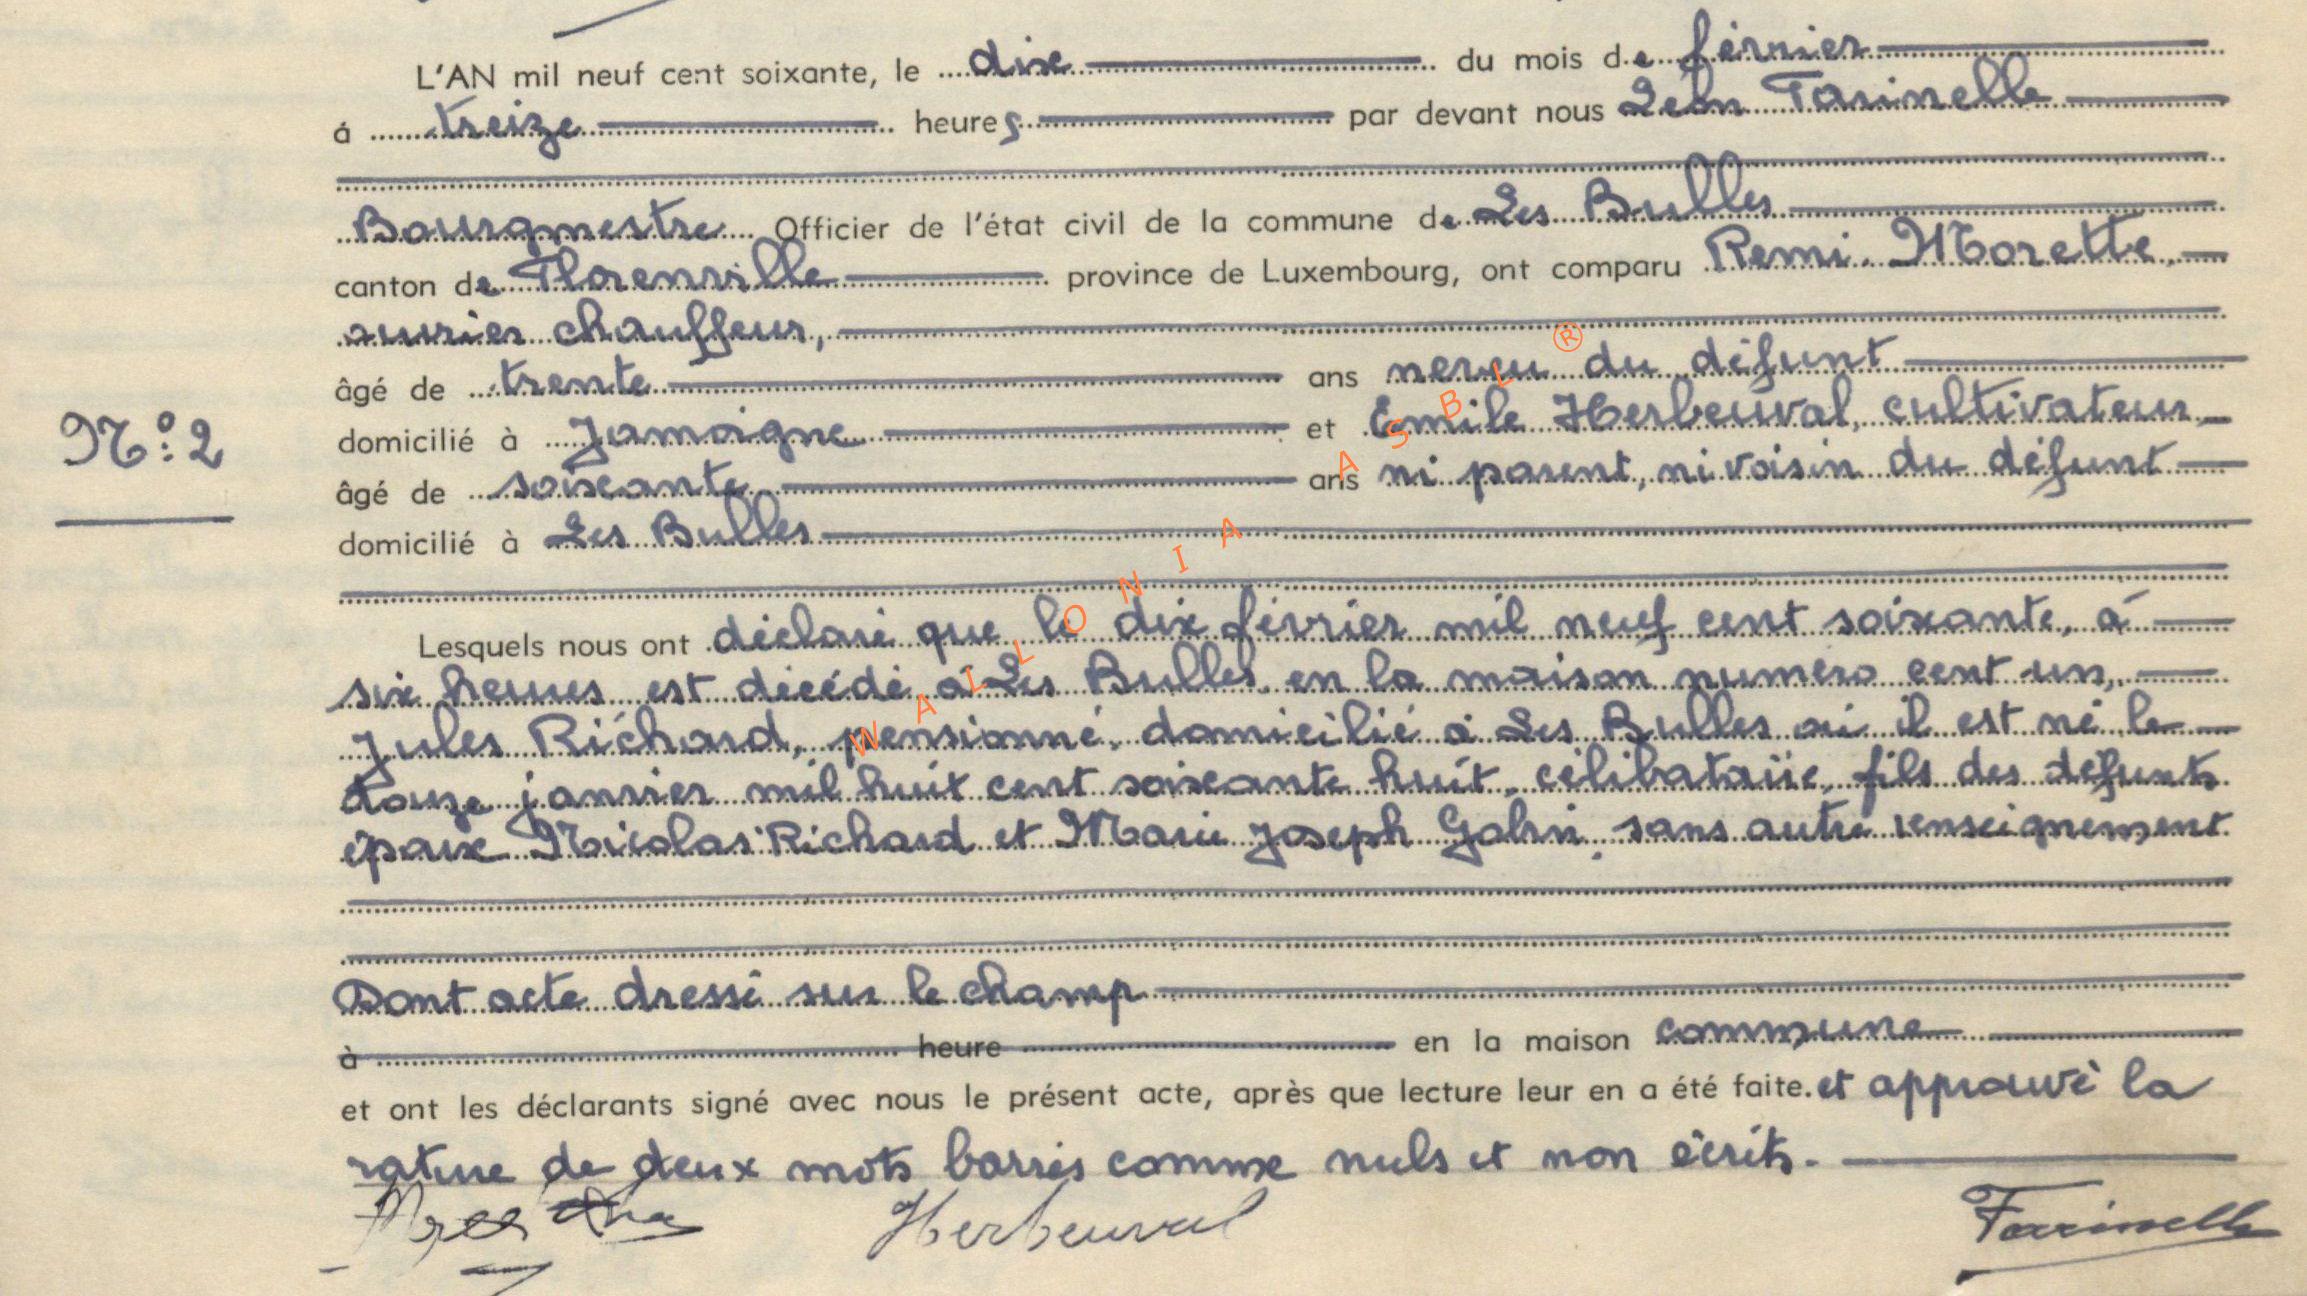 L'AN mil neuf cent soixante, le dix du mois de février
á treize heures par devant nous Léon Farinelle
Bourgmestre Officier de l'état civil de la commune de Les Bulles
canton de Florenville province de Luxembourg, ont comparu Remi Morette,
ouvrier chauffeur,
âgé de trente ans neveu du défunt
N° 2
domicilié à Jamoigne et Emile Herbeuval, cultivateur,
âgé de soixante ans ni parent, ni voisin du défunt
domicilié à Les Bulles
Lesquels nous ont déclaré que le dix février mil neuf cent soixante, à
six heures est décédé à Les Bulles, en la maison numéro cent un,
Jules Richard, pensionné, domicilié à Les Bulles où il est né le
douze janvier mil huit cent soixante huit, célibataire, fils des défunts
époux Nicolas Richard et Marie Joseph, sans autre renseignement
Dont acte dressé sur le champ
à heure en la maison commune
et ont les déclarants signé avec nous le présent acte, après que lecture leur en a été faite. et approuvé la
rature de deux mots barrés comme nuls et non écrits.
Herbeuval Farinelle
WALLONIA ASBL ®